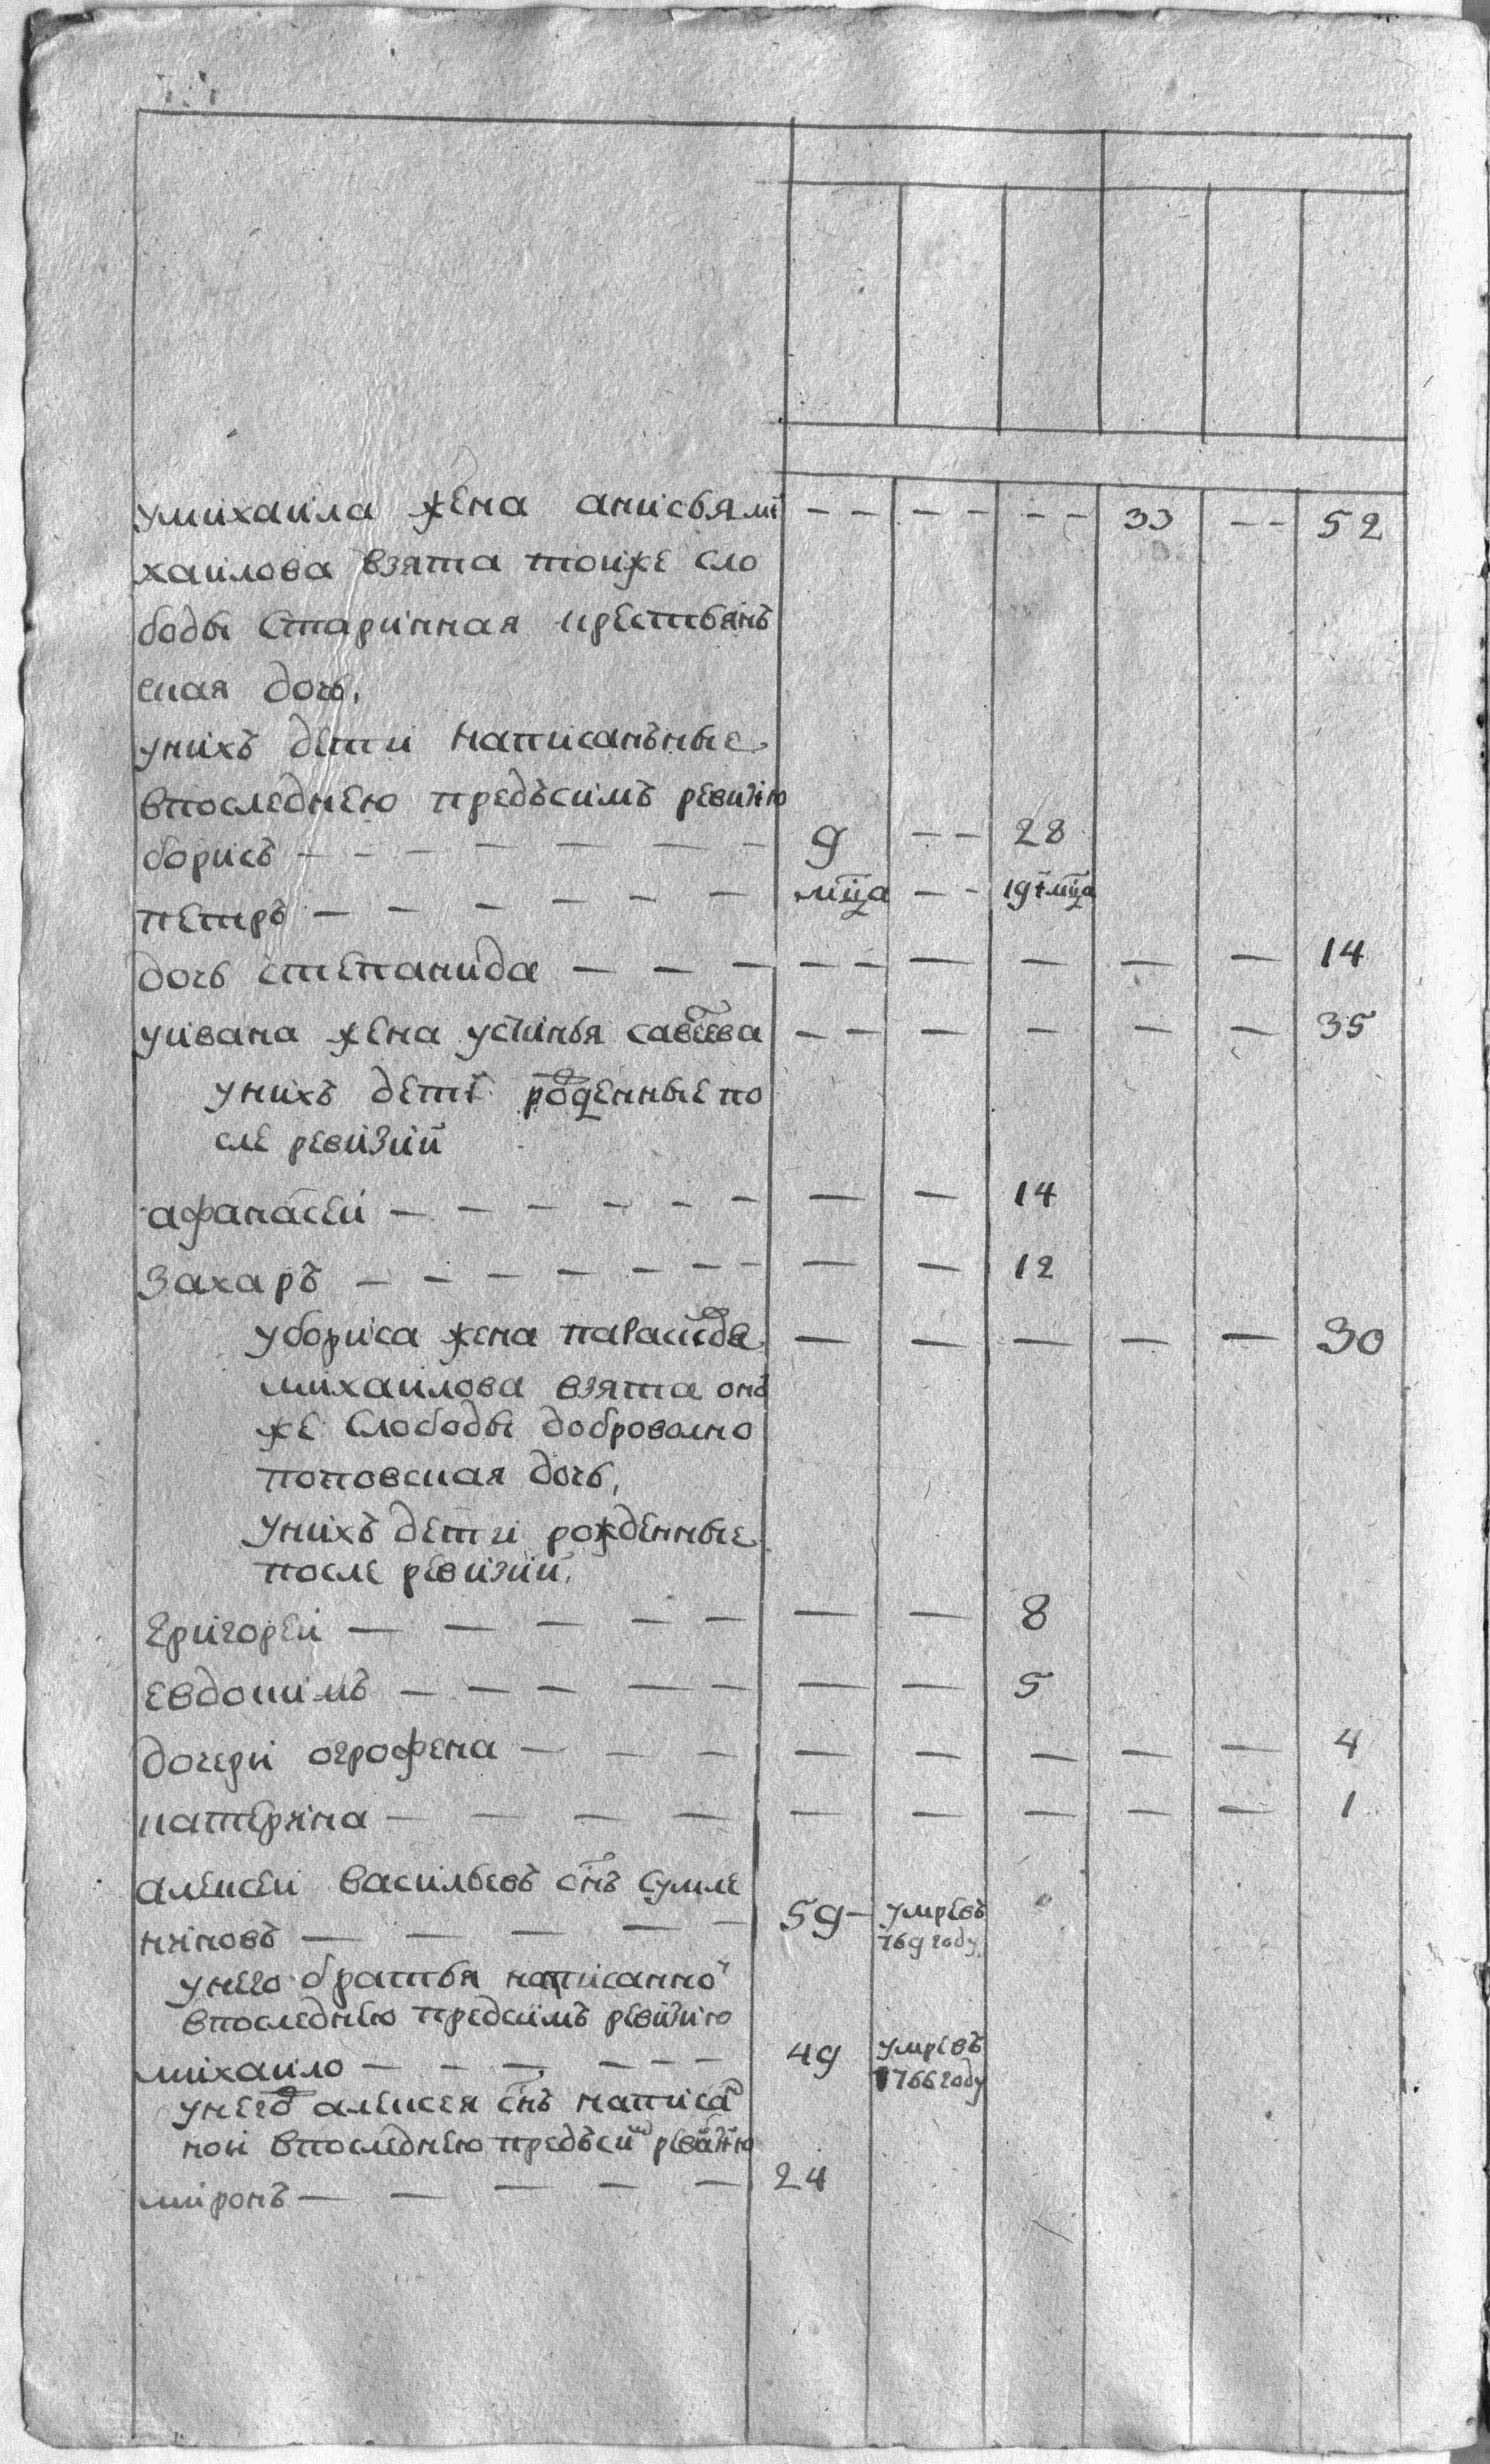 умихаила жена анисья ми — — — 33 — 52
хаилова взята тоиже сло
боды старинная крестьянъ
ская дочь,
унихъ дети написанъные
впоследнею предъсимъ ревизию
борисъ — 9 — 28
петръ — мц҃а — 19 мц҃а
дочь степанида — — — — — — 14
уивана жена устинья савеева — — — — — 35
унихъ дети рожденные по
сле ревизии
афанасеи — — — 14
захаръ — — — 12
убориса жена параскева — — — — — 30
михаилова взята
же слободы доброволно
поповская дочь,
унихъ дети рожденные
после ревизии,
григореи — — — 8
евдокимъ — — — 5
дочери огрофена — — — — — — 4
катерина — — — — — — 1
алексеи васильевъ сн҃ъ сумле
ниновъ — 59 — умре въ
769 году
унего братья написанно
впоследнею предсимъ ревизию
михаило — 49 умре въ
1766 году
унего алексея сн҃ъ написа
нои впоследнею предъсим ревизию
миронъ — 24